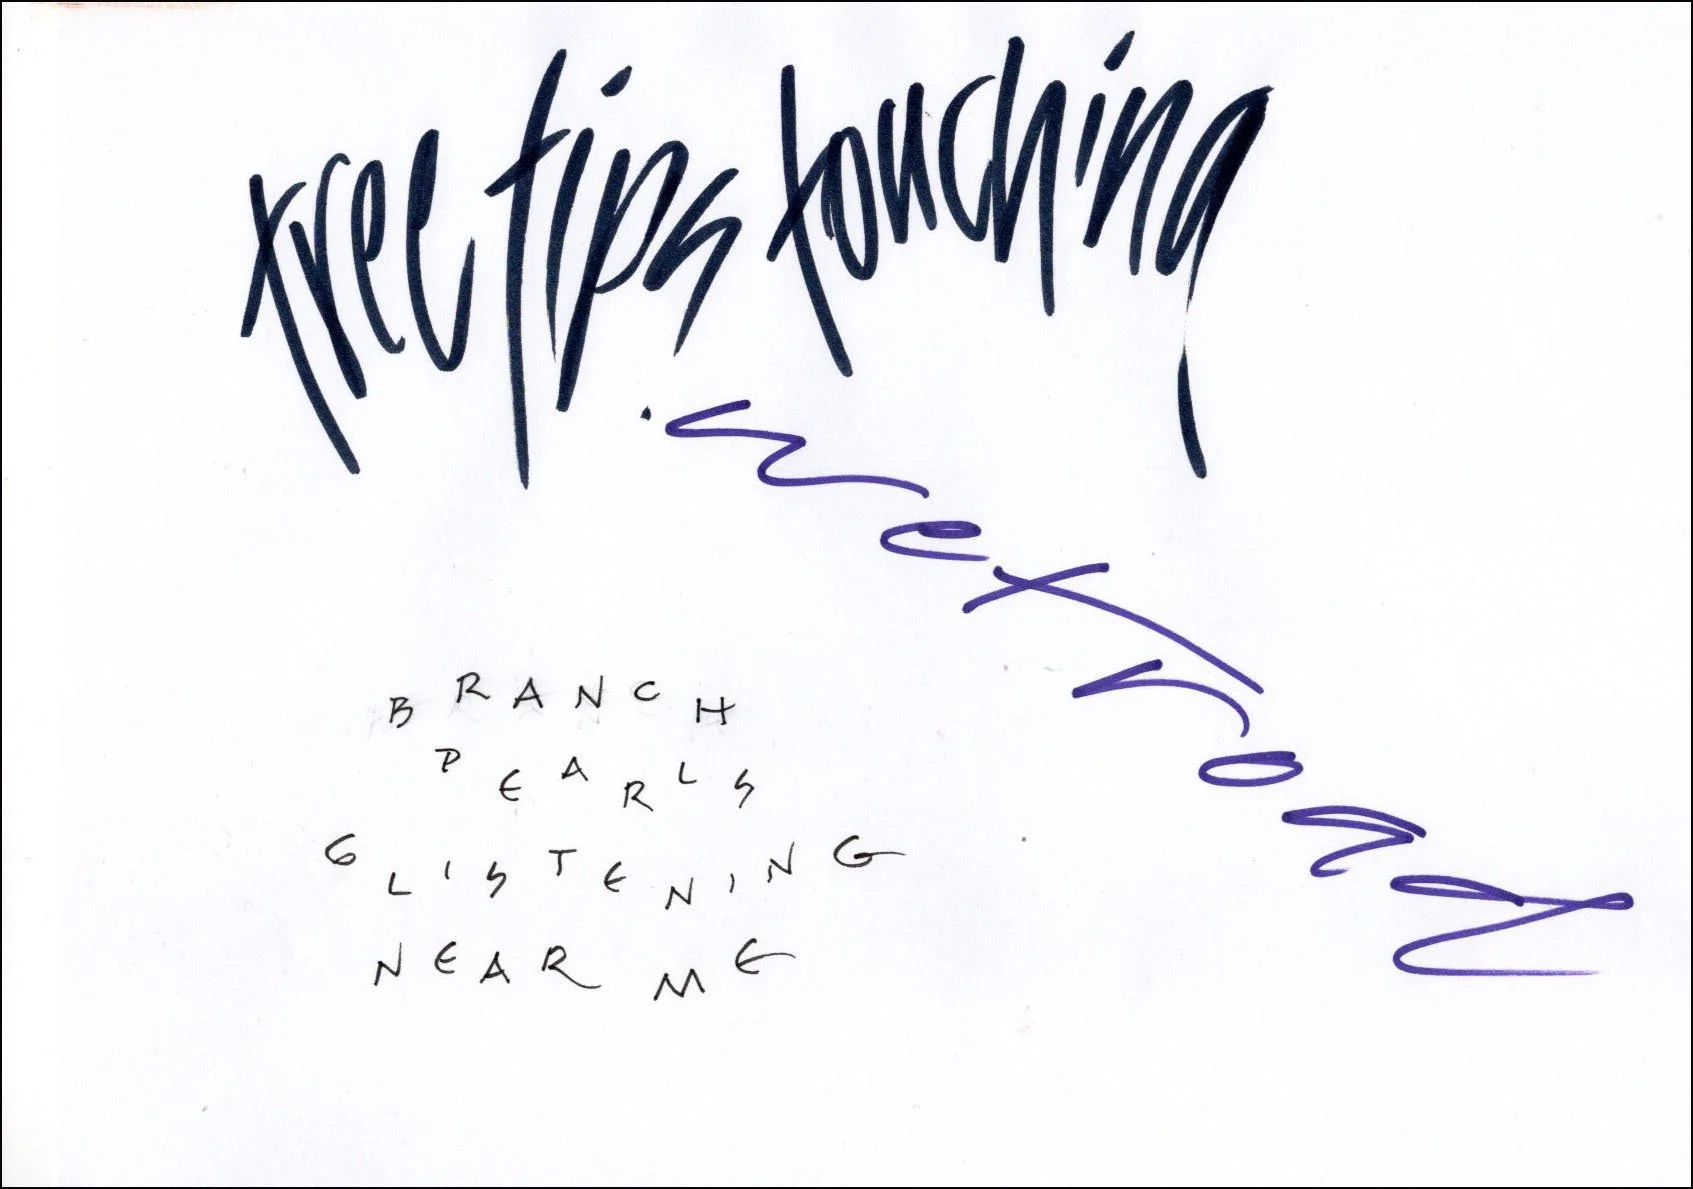 tree tips touching
wet
BRANCH
PEARLS
GLISTENING
NEAR ME